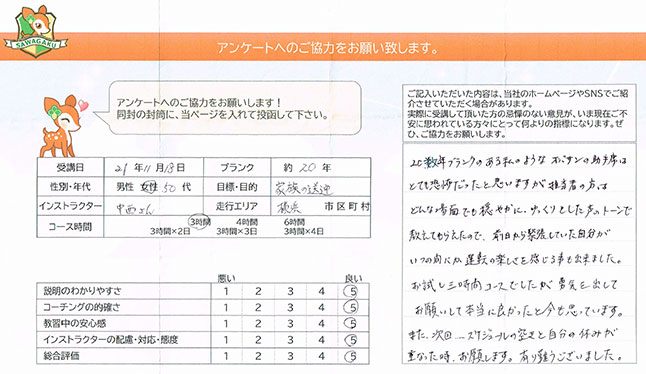 SAWAGAKU
アンケートへのご協力をお願い致します。
アンケートへのご協力をお願いします！
同封の封筒に、当ページを入れて投函して下さい。
受講日 21年11月18日 ブランク 約20年
性別・年代 男性 女性 50代 目標・目的 家族の送迎
インストラクター 中西さん 走行エリア 横浜 市区町村
コース時間 3時間 4時間 6時間
3時間×2日 3時間×3日 3時間×4日
悪い 良い
説明のわかりやすさ 1 2 3 4 5
コーチングの的確さ 1 2 3 4 5
教習中の安心感 1 2 3 4 5
インストラクターの配慮・対応・態度 1 2 3 4 5
総合評価 1 2 3 4 5
ご記入いただいた内容は、当社のホームページやSNSでご紹介
させていただく場合があります。
実際に受講して頂いた方の忌憚のない意見が、いま現在ご不
安に思われている方々にとって何よりの指標になります。ぜ
ひ、ご協力をお願いします。
20数年ブランクのある私のようなオバサンの助手席は
とても恐怖だったと思いますが担当者の方は
どんな場面でも穏やかに、ゆっくりとした声のトーンで
教えてもらえたので、前日から緊張していた自分が
いつの間にか運転の楽しさを感じる事も出来ました。
お試し三時間コースでしたが勇気を出して
お願いして本当に良かったと今も思っています。
また、次回、スケジュールの空きと自分の休みが
重なった時、お願します。有り難うございました。